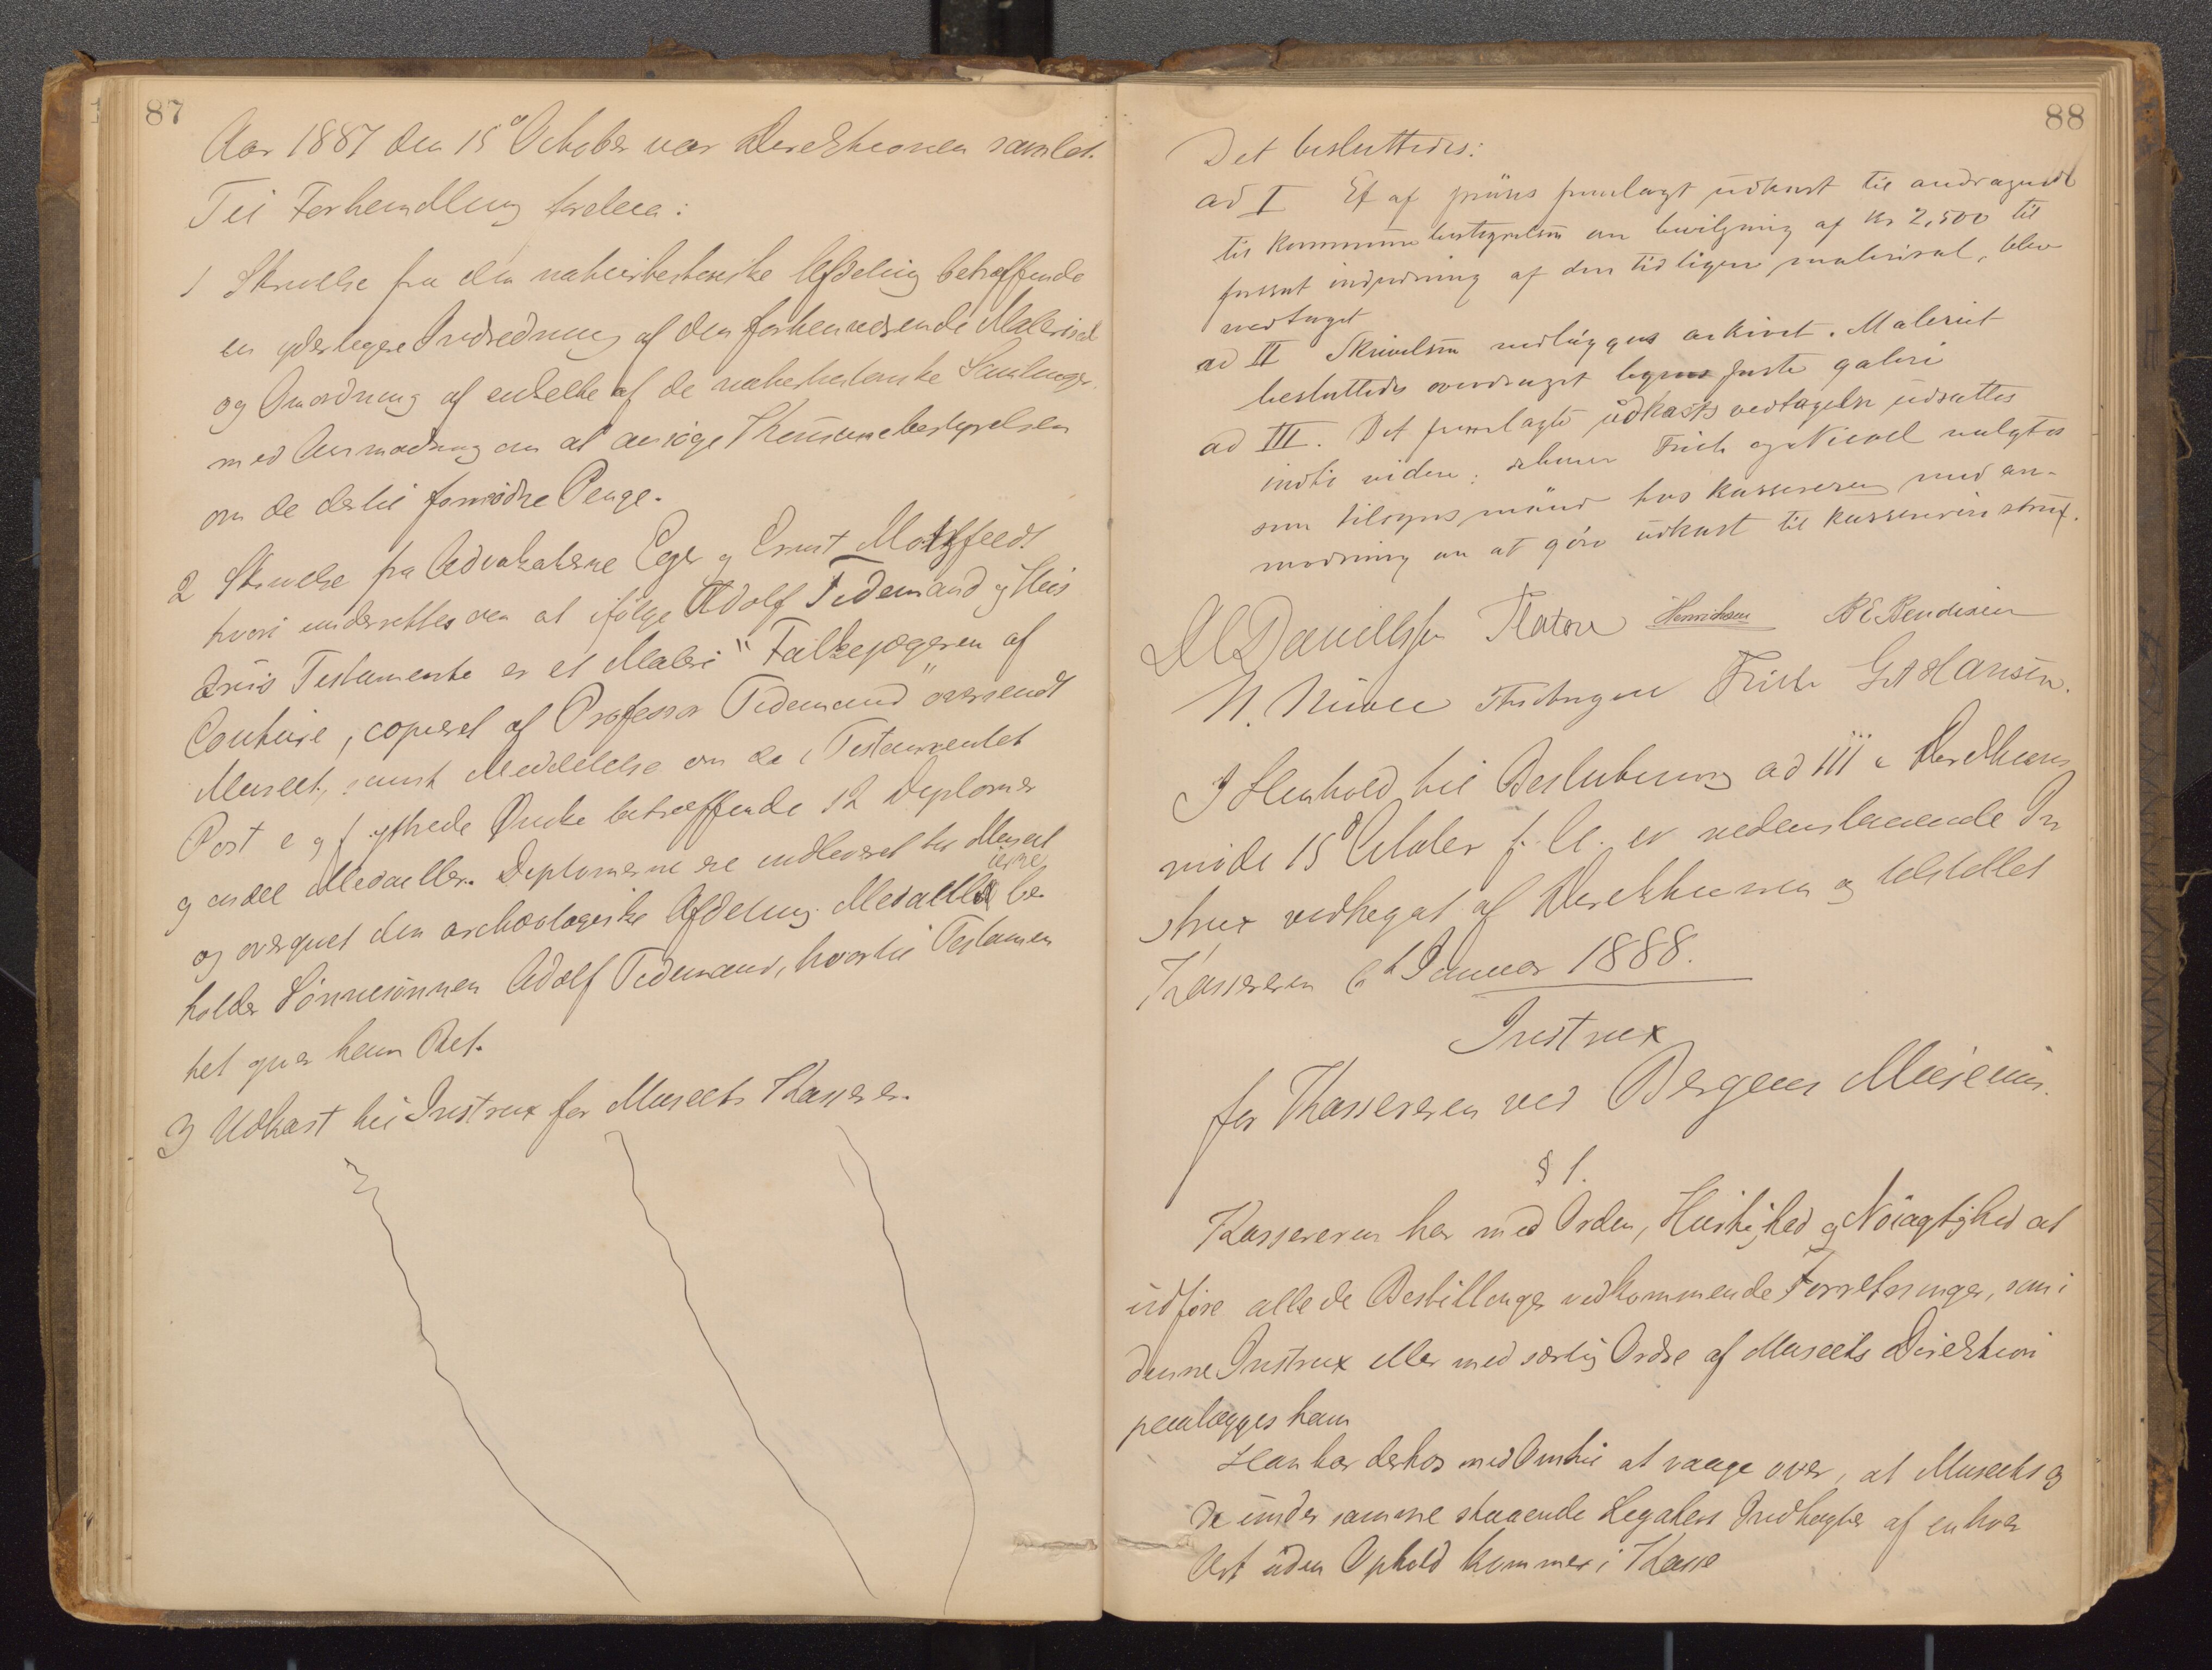 87
Aar 1887 den 15de October var Direktionen samlet.
Til Forhandling forelaa:
1 Skrivelse fra den naturhistoriske Afdeling betræffende
en yderligere Indredning af den forhenværende Malerisal
og Omordning af enkelte af de naturhistoriske Samlinger,
med Anmodning om at ansøge Kommunebestyrelsen
om de dertil fornødne Penge.
2 Skrivelse fra Advokaterne Eger og Ernst Motzfeldt
hvori underrettes om at ifølge Adolf Tidemand og Hus
truis Testamente er et Maleri "Falkejægeren af
Couture, copieret af Professor Tidemand" oversendt
Museet, samt Meddelelse om de i Testamentet
Post e og f yttrede Ønske betræffende 12 Diplomer
og endel Medailler. Diplomerne ere indleveret til Museet
og overgivet den archæologiske Afdeling. Medaillerne be
holder Sønnesønnen Adolf Tidemand, hvortil Testamen
tet giver ham Ret.
3 Udkast til Instrux for Museets Kasserer.
88
Det besluttedes:
ad I Et af præses fremlagt udkast til andragende
til kommunebestyrelsen om bevilgning af kr 2,500 til
fortsat indredning af den tidligere malerisal, blev
vedtaget
ad II Skrivelsen vedlægges arkivet. Maleriet
besluttedes overdraget byens faste galeri
ad III. Det fremlagte udkasts vedtagelse udsattes
indtil videre; d'herrer Friele og Nicoll valgtes
som tilsynsmænd hos kassereren med an-
modning om at gøre udkast til kassererinstrux.
DC Danielssen Flatow Henrichsen B E Bendixen
N. Nicoll Friele G A Hansen.
I Henhold til Beslutning ad III i Direktions
møde 15 October f. A. er nedenstaaende In
strux vedtaget af Direktionen og tilstillet
Kassereren 6te Januar 1888.
Instrux
for Kassereren ved Bergens Museum.
§ 1.
Kassereren har med Orden, Hurtighed og Nøiagtighed at
udføre alle de Bestillingen vedkommende Forretninger, som i
denne Instrux eller med særlig Ordre af Museets Direktion
paalægges ham
Han har derhos med Omhu at vaage over, at Museets og
de under samme staaende Legaters Indtægter af enhver
Art uden Ophold kommer i Kasse